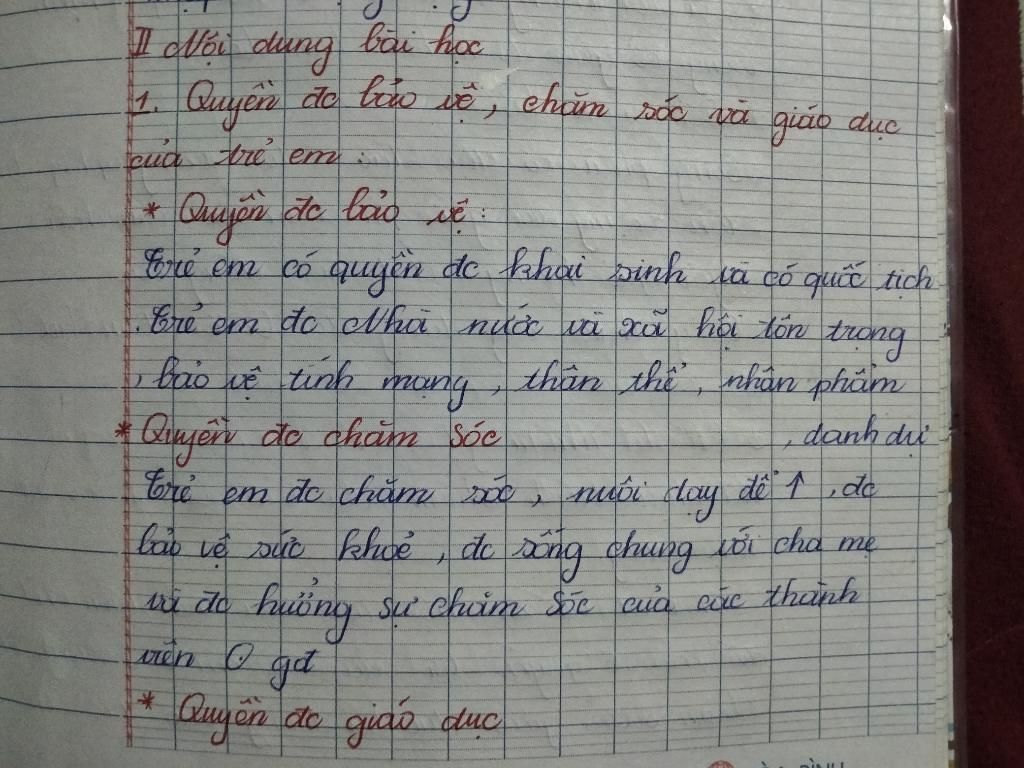 II Nội dung bài học
1. Quyền đc bảo vệ, chăm sóc và giáo dục
của trẻ em :
* Quyền đc bảo vệ :
Trẻ em có quyền đc khai sinh và có quốc tịch
. Trẻ em đc Nhà nước và xã hội tôn trọng
, bảo vệ tính mạng, thân thể, nhân phẩm
, danh dự
* Quyền đc chăm sóc
Trẻ em đc chăm sóc, nuôi dạy để ↑, đc
bảo vệ sức khoẻ, đc sống chung với cha mẹ
và đc hưởng sự chăm sóc của các thành
viên ⊙ gđ
* Quyền đc giáo dục